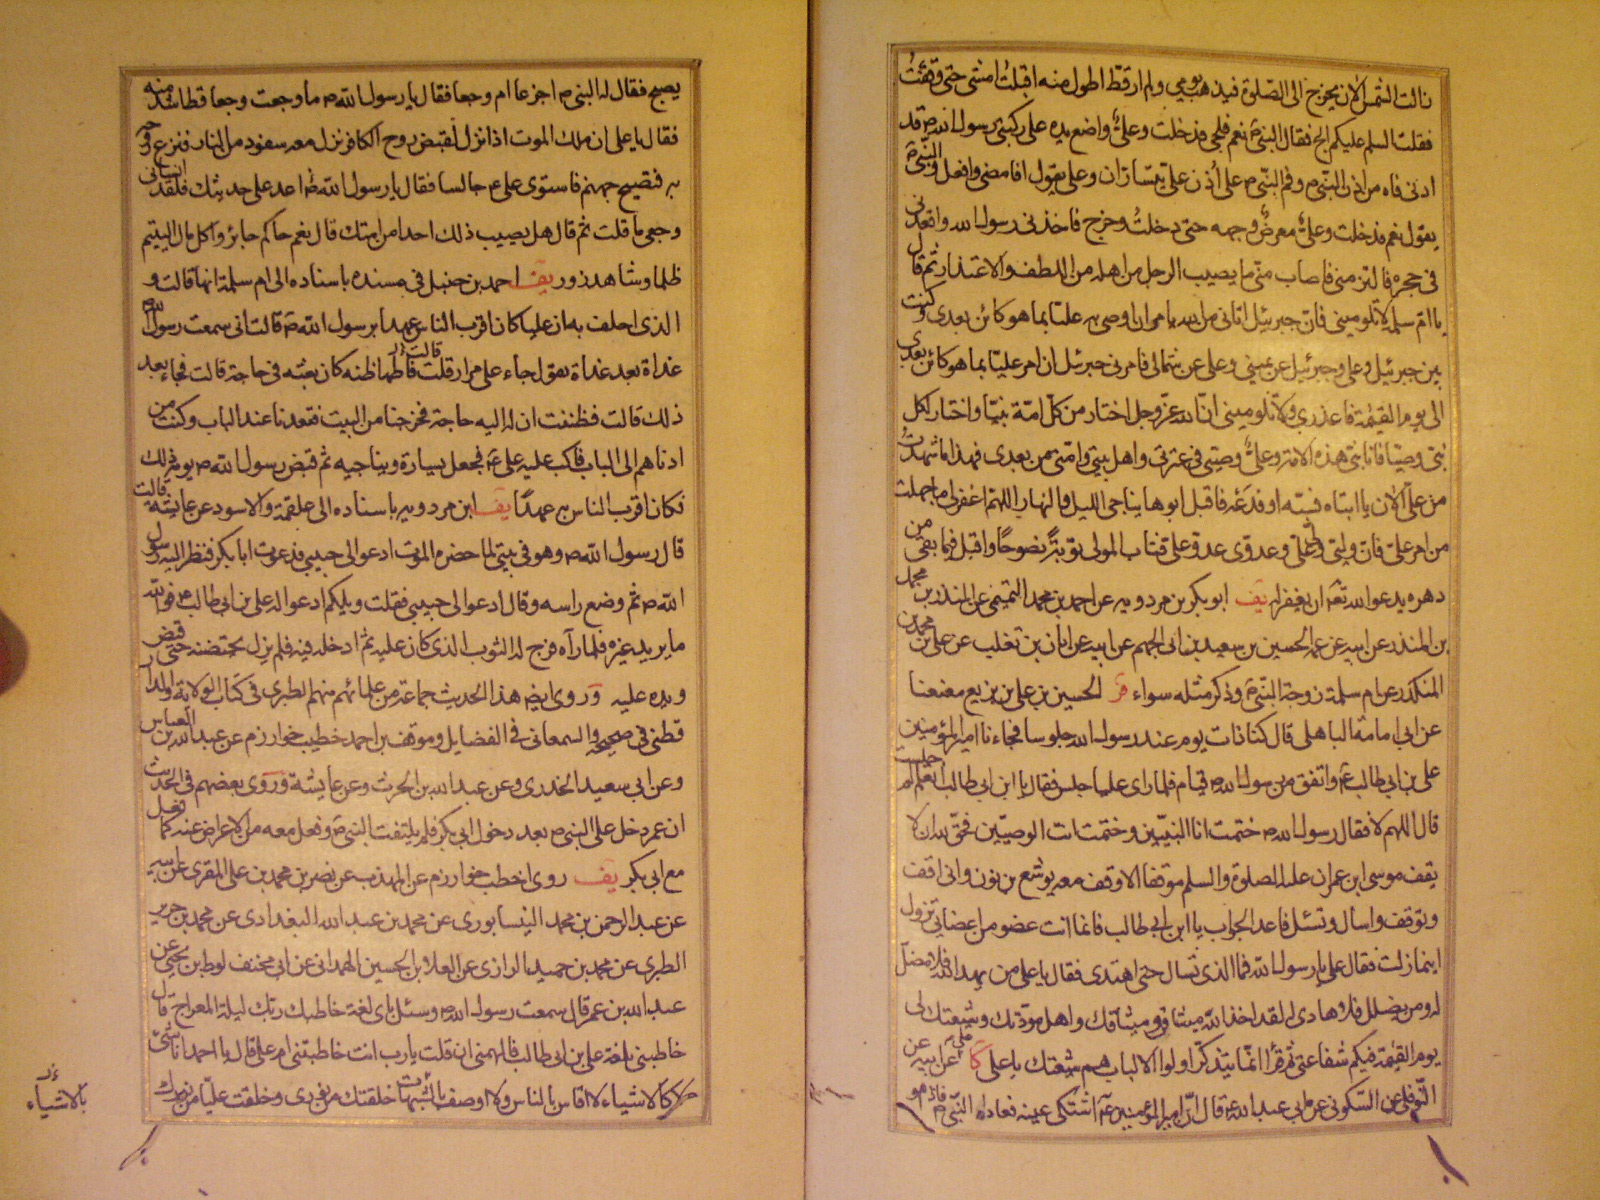 نالت الشمس الآن يخرج الى الصلوة فيذهب يومي ولم ار قط اطول منه اقبلت امشي حتى وقفت
فقلت السلم عليكم الج فقال النبي نعم فلجي فدخلت وعلي واضع يده على ركبتي رسول الله ص قد
ادنى فاه من اذن النبي ص وفم النبي ص على اذن علي يتساران وعلي يقول افامضي وافعل والنبي ص
يقول نعم فدخلت وعلي معرض وجهه حتى دخلت وخرج فاخذني رسول الله واقعدني
في حجره فالتزمني فاصاب مني ما يصيب الرجل من اهله من اللطف والاعتذار ثم قال
يا ام سلمة لا تلوميني فان جبرئيل اتاني من الله يامر ان اوصي به عليا بما هو كائن بعدي وكنت
بين جبرئيل وعلي وجبرئيل عن يميني وعلي عن شمالي فامرني جبرئيل ان امر عليا بما هو كائن بعدي
الى يوم القيمة فاعذريني ولا تلوميني ان الله عز وجل اختار من كل امة نبيا واختار لكل
نبي وصيا فانا نبي هذه الامة وعلي وصيي في عترتي واهل بيتي وامتي من بعدي فهذا ما شهدت
من علي الآن يا ابتاه فسبه او فدعه فاقبل ابوها يناجي الليل والنهار اللهم اغفر لي ما جهلت
من امر علي فان وليي ولي علي وعدوي عدو علي فتاب المولى توبة نصوحا واقبل فيما بقي من
دهره يدعو الله تعه ان يغفر له يف ابو بكر بن مردويه عن احمد بن محمد التميمي عن المنذر بن محمد
بن المنذر عن ابيه عن عمه الحسين بن سعيد بن ابي الجهم عن ابيه عن ابان بن تغلب عن علي بن محمد بن
المنكدر عن ام سلمة زوجة النبي ص وذكر مثله سواء فر الحسين بن علي بن بزيع معنعنا
عن ابي امامة الباهلي قال كنا ذات يوم عند رسول الله جلوسا فجاءنا امير المؤمنين
علي بن ابي طالب ع واتفق من رسول الله ص قيام فلما راى عليا جلس فقال يا ابن ابي طالب اتعلم لم جلست
قال اللهم لا فقال رسول الله ص ختمت انا النبيين وختمت انت الوصيين فحق لله ان لا
يقف موسى ابن عمران عليه الصلوة والسلم موقفا الا وقف معه يوشع بن نون واني اقف
وتوقف واسأل وتسئل فاعد الجواب يا ابن ابي طالب فانما انت عضو من اعضائي تزول
اينما زلت فقال علي يا رسول الله فما الذي تسأل حتى اهتدي فقال يا علي من يهد الله فلا مضل
له ومن يضلل فلا هادي له لقد اخذ الله ميثاقي وميثاقك واهل مودتك وشيعتك الى
يوم القيمة فيكم شفاعتي ثم قرأ انما يتذكر اولوا الالباب هم شيعتك يا علي كا علي عن ابيه عن
النوفلي عن السكوني عن ابي عبد الله ع قال ان امير المؤمنين ع اشتكى عينه فعاده النبي ص فاذا هو
يصيح فقال له النبي ص اجزعا ام وجعا فقال يا رسول الله ص ما وجعت وجعا قط اشد منه
فقال يا علي ان ملك الموت اذا نزل لقبض روح الكافر نزل معه سفود من النار فنزع روحه
به فتصيح جهنم فاستوى علي ع جالسا فقال يا رسول الله ص اعد علي حديثك فلقد انساني
وجعي ما قلت ثم قال هل يصيب ذلك احدا من امتك قال نعم حاكم جائر واكل مال اليتيم
ظلما وشاهد زور يف احمد بن حنبل في مسنده باسناده الى ام سلمة انها قالت و
الذي احلف به ان عليا كان اقرب الناس عهدا برسول الله ص قالت اني سمعت رسول الله ص
غداة بعد غداة يقول جاء علي مرارا قلت فاطمة اظنه كان بعثه في حاجة قالت فجاء بعد
قالت
ذلك قالت فظننت ان له اليه حاجة فخرجنا من البيت فقعدنا عند الباب وكنت من
ادناهم الى الباب فاكب عليه علي ع فجعل يساره ويناجيه ثم قبض رسول الله ص يومه ذلك
فكان اقرب الناس به عهدا يف ابن مردويه باسناده الى علقمة والاسود عن عايشة قالت
قال رسول الله ص وهو في بيتي لما حضره الموت ادعوا لي حبيبي فدعوت ابا بكر فنظر اليه رسول
الله ص ثم وضع راسه وقال ادعوا لي حبيبي فقلت ويلكم ادعوا له علي بن ابي طالب ص فوالله
ما يريد غيره فلما رآه فرج له الثوب الذي كان عليه ثم ادخله فيه فلم يزل يحتضنه حتى قبض
ويده عليه وروى ايض هذا الحديث جماعة من علمائهم منهم الطبري في كتاب الولاية والدار
قطني في صحيحه والسمعاني في الفضايل وموفق بن احمد خطيب خوارزم عن عبد الله بن العباس
وعن ابي سعيد الخدري وعن عبد الله بن الحرث وعن عايشة وروى بعضهم في الحديث
ان عمر دخل على النبي ص بعد دخول ابي بكر فلم يلتفت النبي ص وفعل معه من الاعراض عنه كما فعل
مع ابي بكر يف روى اخطب خوارزم عن المهذب عن نصر بن محمد بن علي المقري عن ابيه
عن عبد الرحمن بن محمد النيسابوري عن محمد بن عبد الله البغدادي عن محمد بن جرير
الطبري عن محمد بن حميد الرازي عن العلا بن الحسين الهمداني عن ابي مخنف لوط بن يحيى عن
عبد الله بن عمر قال سمعت رسول الله ص وسئل باي لغة خاطبك ربك ليلة المعراج قال
خاطبني بلغة علي بن ابي طالب فالهمني ان قلت يا رب انت خاطبتني ام علي قال يا احمد انا شيء
لا كالاشياء لا اقاس بالناس ولا اوصف بالشبهات خلقتك من نوري وخلقت عليا من نورك
بالاشياء